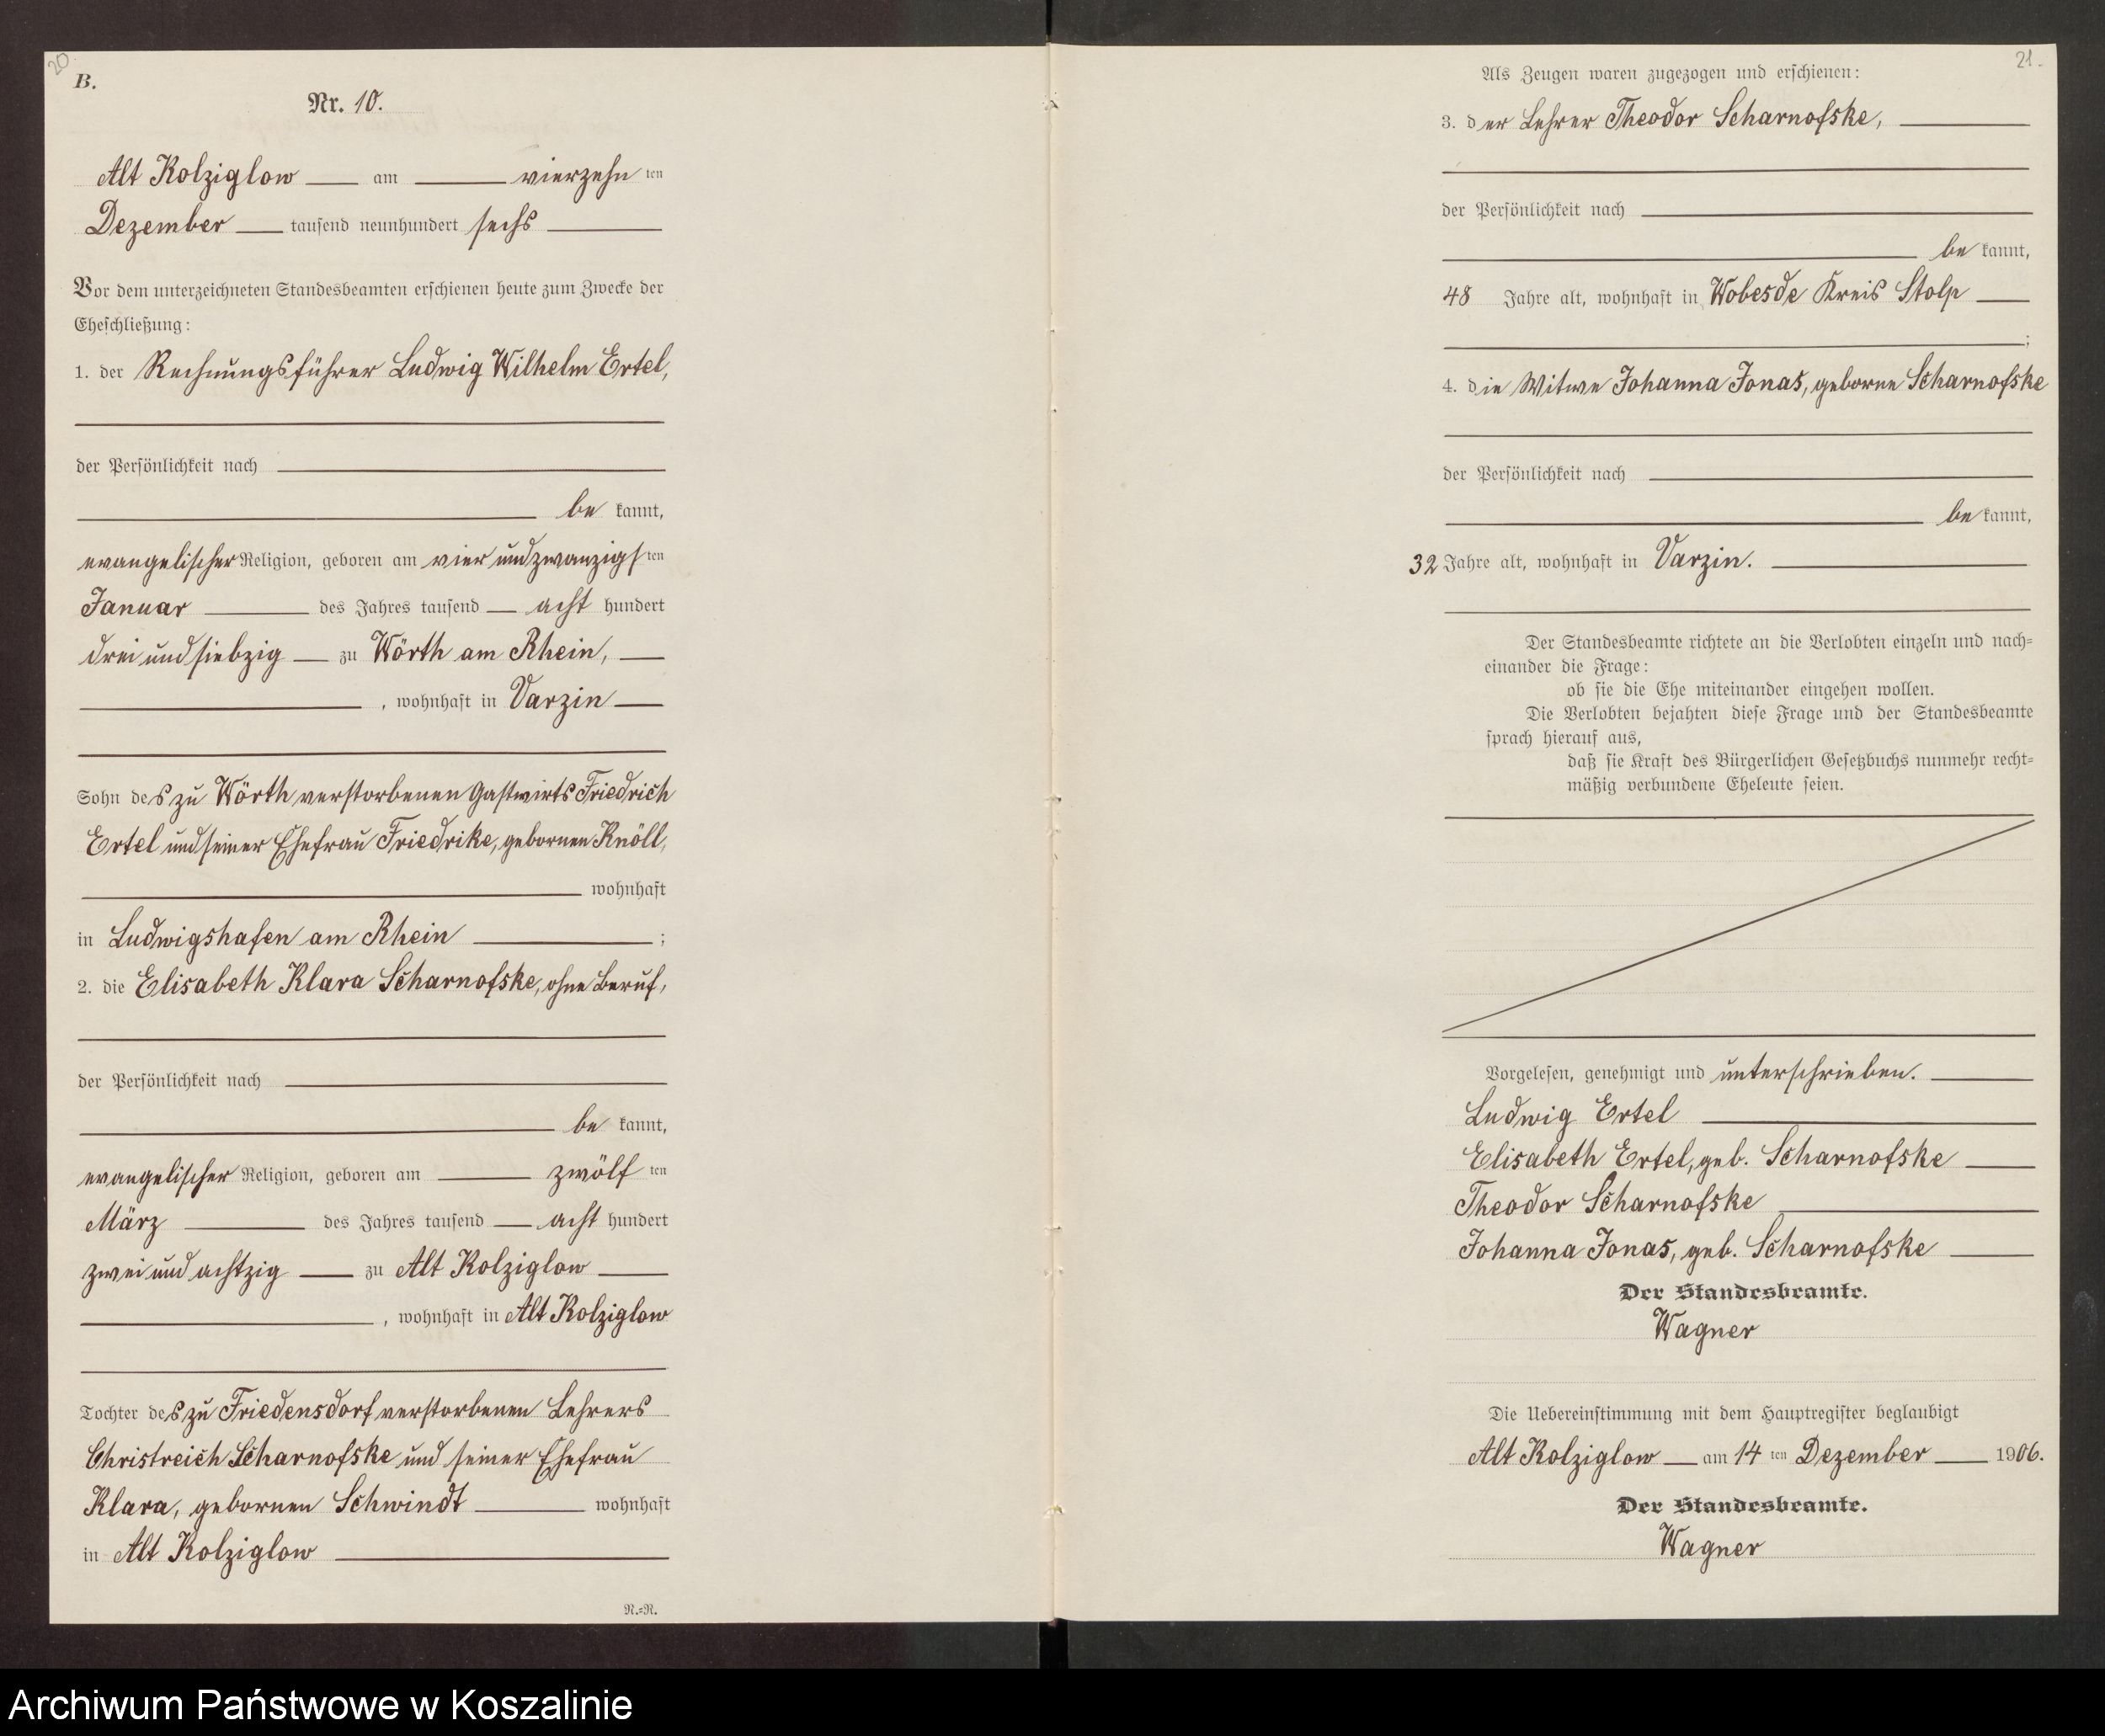 20
B.
Nr. 10.
Alt Kolziglow am vierzehn ten
Dezember tausend neunhundert sechs
Vor dem unterzeichneten Standesbeamten erschienen heute zum Zwecke der
Eheschließung:
1. der Rechnungsführer Ludwig Wilhelm Ertel,
der Persönlichkeit nach
be kannt,
evangelischer Religion, geboren am vier und zwanzigsten
Januar des Jahres tausend acht hundert
drei und siebzig zu Wörth am Rhein,
, wohnhaft in Varzin
Sohn des zu Wörth verstorbenen Gastwirts Friedrich
Ertel und seiner Ehefrau Friedrike, gebornen Knöll,
wohnhaft
in Ludwigshafen am Rhein ;
2. die Elisabeth Klara Scharnofske, ohne Beruf,
der Persönlichkeit nach
be kannt,
evangelischer Religion, geboren am zwölf ten
März des Jahres tausend acht hundert
zwei und achtzig zu Alt Kolziglow
, wohnhaft in Alt Kolziglow
Tochter des zu Friedensdorf verstorbenen Lehrers
Christreich Scharnofske und seiner Ehefrau
Klara, gebornen Schwindt wohnhaft
in Alt Kolziglow
N.=N.
21.
Als Zeugen waren zugezogen und erschienen:
3. der Lehrer Theodor Scharnofske,
der Persönlichkeit nach
be kannt,
48 Jahre alt, wohnhaft in Wobesde Kreis Stolp
;
4. die Witwe Johanna Jonas, geborne Scharnofske
der Persönlichkeit nach
be kannt,
32 Jahre alt, wohnhaft in Varzin.
Der Standesbeamte richtete an die Verlobten einzeln und nach=
einander die Frage:
ob sie die Ehe miteinander eingehen wollen.
Die Verlobten bejahten diese Frage und der Standesbeamte
sprach hierauf aus,
daß sie Kraft des Bürgerlichen Gesetzbuchs nunmehr recht=
mäßig verbundene Eheleute seien.
Vorgelesen, genehmigt und unterschrieben.
Ludwig Ertel
Elisabeth Ertel, geb. Scharnofske
Theodor Scharnofske
Johanna Jonas, geb. Scharnofske
Der Standesbeamte.
Wagner
Die Uebereinstimmung mit dem Hauptregister beglaubigt
Alt Kolziglow am 14 ten Dezember 1906.
Der Standesbeamte.
Wagner
Archiwum Państwowe w Koszalinie